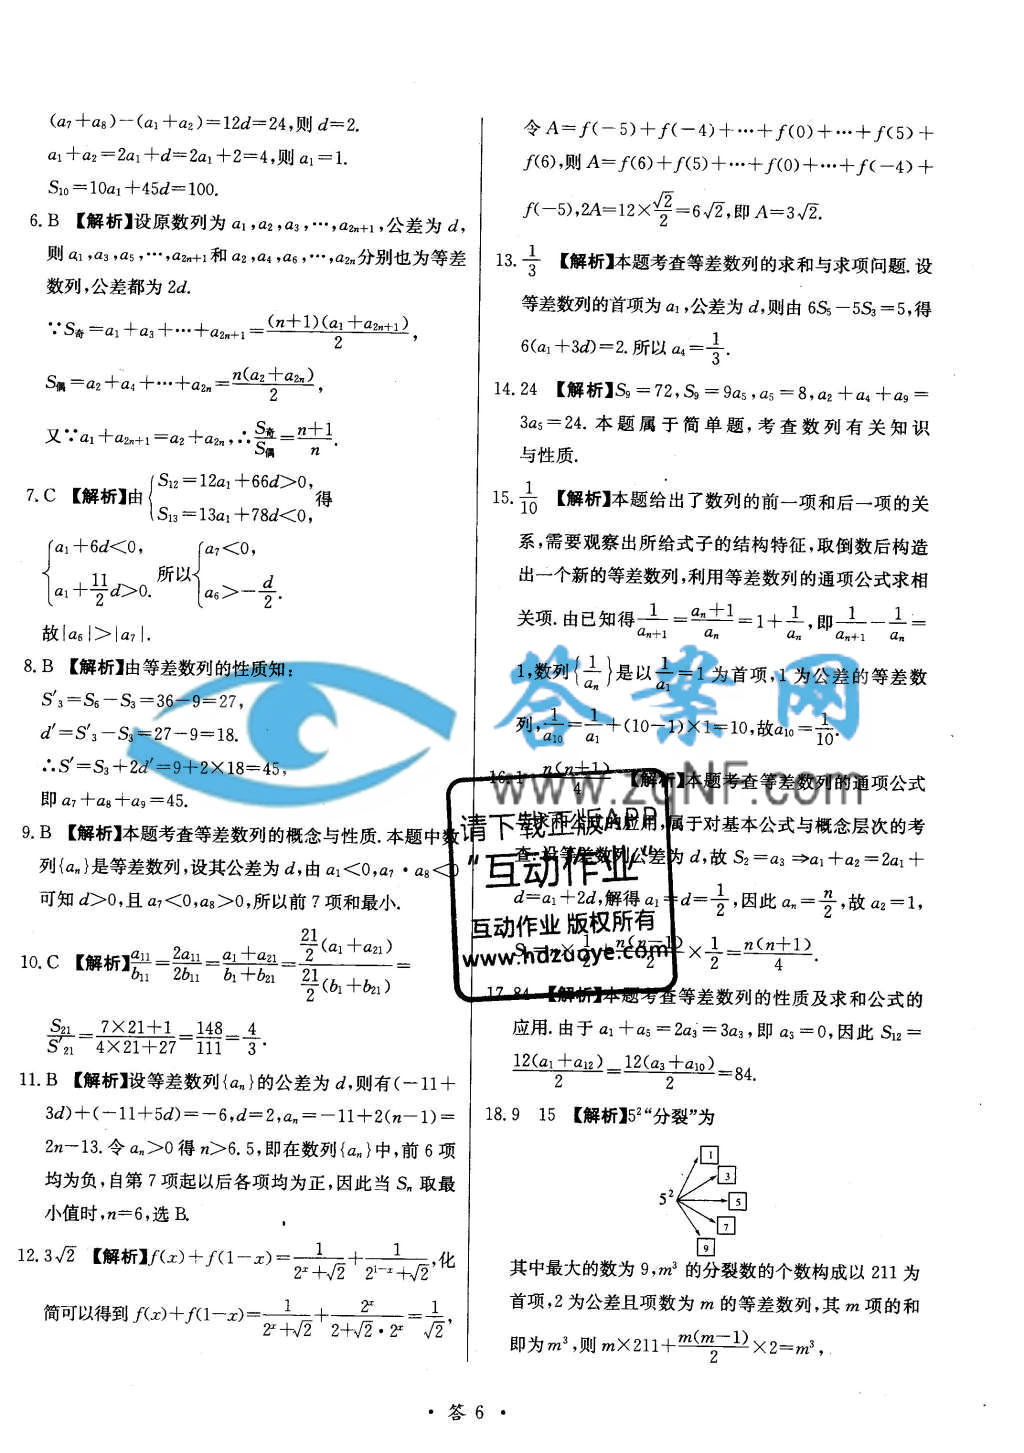 (a₇+a₈)-(a₁+a₂)=12d=24,则 d=2.
a₁+a₂=2a₁+d=2a₁+2=4,则 a₁=1.
S₁₀=10a₁+45d=100.
6. B 【解析】设原数列为 a₁,a₂,a₃,…,a₂ₙ₊₁,公差为 d,
则 a₁,a₃,a₅,…,a₂ₙ₊₁和 a₂,a₄,a₆,…,a₂ₙ分别也为等差
数列,公差都为 2d.
∵S奇=a₁+a₃+…+a₂ₙ₊₁=(n+1)(a₁+a₂ₙ₊₁)/2,
S偶=a₂+a₄+…+a₂ₙ=n(a₂+a₂ₙ)/2,
又∵a₁+a₂ₙ₊₁=a₂+a₂ₙ,∴S奇/S偶=(n+1)/n.
7. C 【解析】由{S₁₂=12a₁+66d>0, S₁₃=13a₁+78d<0,得
{a₁+6d<0, a₁+11/2d>0. 所以{a₇<0, a₆>-d/2.
故|a₆|>|a₇|.
8. B 【解析】由等差数列的性质知:
S′₃=S₆-S₃=36-9=27,
d′=S′₃-S₃=27-9=18.
∴S′=S₃+2d′=9+2×18=45,
即 a₇+a₈+a₉=45.
9. B 【解析】本题考查等差数列的概念与性质.本题中数
列{aₙ}是等差数列,设其公差为 d,由 a₁<0,a₇·a₈<0
可知 d>0,且 a₇<0,a₈>0,所以前 7 项和最小.
10. C 【解析】a₁₁/b₁₁=2a₁₁/2b₁₁=(a₁+a₂₁)/(b₁+b₂₁)=21/2(a₁+a₂₁)/21/2(b₁+b₂₁)=
S₂₁/S′₂₁=(7×21+1)/(4×21+27)=148/111=4/3.
11. B 【解析】设等差数列{aₙ}的公差为 d,则有(-11+
3d)+(-11+5d)=-6,d=2,aₙ=-11+2(n-1)=
2n-13.令 aₙ>0 得 n>6.5,即在数列{aₙ}中,前 6 项
均为负,自第 7 项起以后各项均为正,因此当 Sₙ 取最
小值时,n=6,选 B.
12. 3√2 【解析】f(x)+f(1-x)=1/(2ˣ+√2)+1/(2¹⁻ˣ+√2),化
简可以得到 f(x)+f(1-x)=1/(2ˣ+√2)+2ˣ/(2+√2·2ˣ)=1/√2,
令 A=f(-5)+f(-4)+…+f(0)+…+f(5)+
f(6),则 A=f(6)+f(5)+…+f(0)+…+f(-4)+
f(-5),2A=12×√2/2=6√2,即 A=3√2.
13. 1/3 【解析】本题考查等差数列的求和与求项问题.设
等差数列的首项为 a₁,公差为 d,则由 6S₅-5S₃=5,得
6(a₁+3d)=2.所以 a₄=1/3.
14. 24 【解析】S₉=72,S₉=9a₅,a₅=8,a₂+a₄+a₉=
3a₅=24.本题属于简单题,考查数列有关知识
与性质.
15. 1/10 【解析】本题给出了数列的前一项和后一项的关
系,需要观察出所给式子的结构特征,取倒数后构造
出一个新的等差数列,利用等差数列的通项公式求相
关项.由已知得1/aₙ₊₁=(aₙ+1)/aₙ=1+1/aₙ,即1/aₙ₊₁-1/aₙ=
1,数列{1/aₙ}是以1/a₁=1 为首项,1 为公差的等差数
列,1/a₁₀=1/a₁+(10-1)×1=10,故a₁₀=1/10.
16. 1 n(n+1)/4 【解析】本题考查等差数列的通项公式
与求和公式的应用,属于对基本公式与概念层次的考
查.设等差数列公差为 d,故 S₂=a₃⇒a₁+a₂=2a₁+
d=a₁+2d,解得 a₁=d=1/2,因此 aₙ=n/2,故 a₂=1,
Sₙ=n×1/2+n(n-1)/2×1/2=n(n+1)/4.
17. 84 【解析】本题考查等差数列的性质及求和公式的
应用.由于 a₁+a₅=2a₃=3a₃,即 a₃=0,因此 S₁₂=
12(a₁+a₁₂)/2=12(a₃+a₁₀)/2=84.
18. 9 15 【解析】5²“分裂”为
1
3
5² 5
7
9
其中最大的数为 9,m³ 的分裂数的个数构成以 211 为
首项,2 为公差且项数为 m 的等差数列,其 m 项的和
即为 m³,则 m×211+m(m-1)/2×2=m³,
· 答 6 ·
答案网
www.zqNF.com
请下载正版APP
“互动作业”
互动作业 版权所有
www.hdzuoye.com